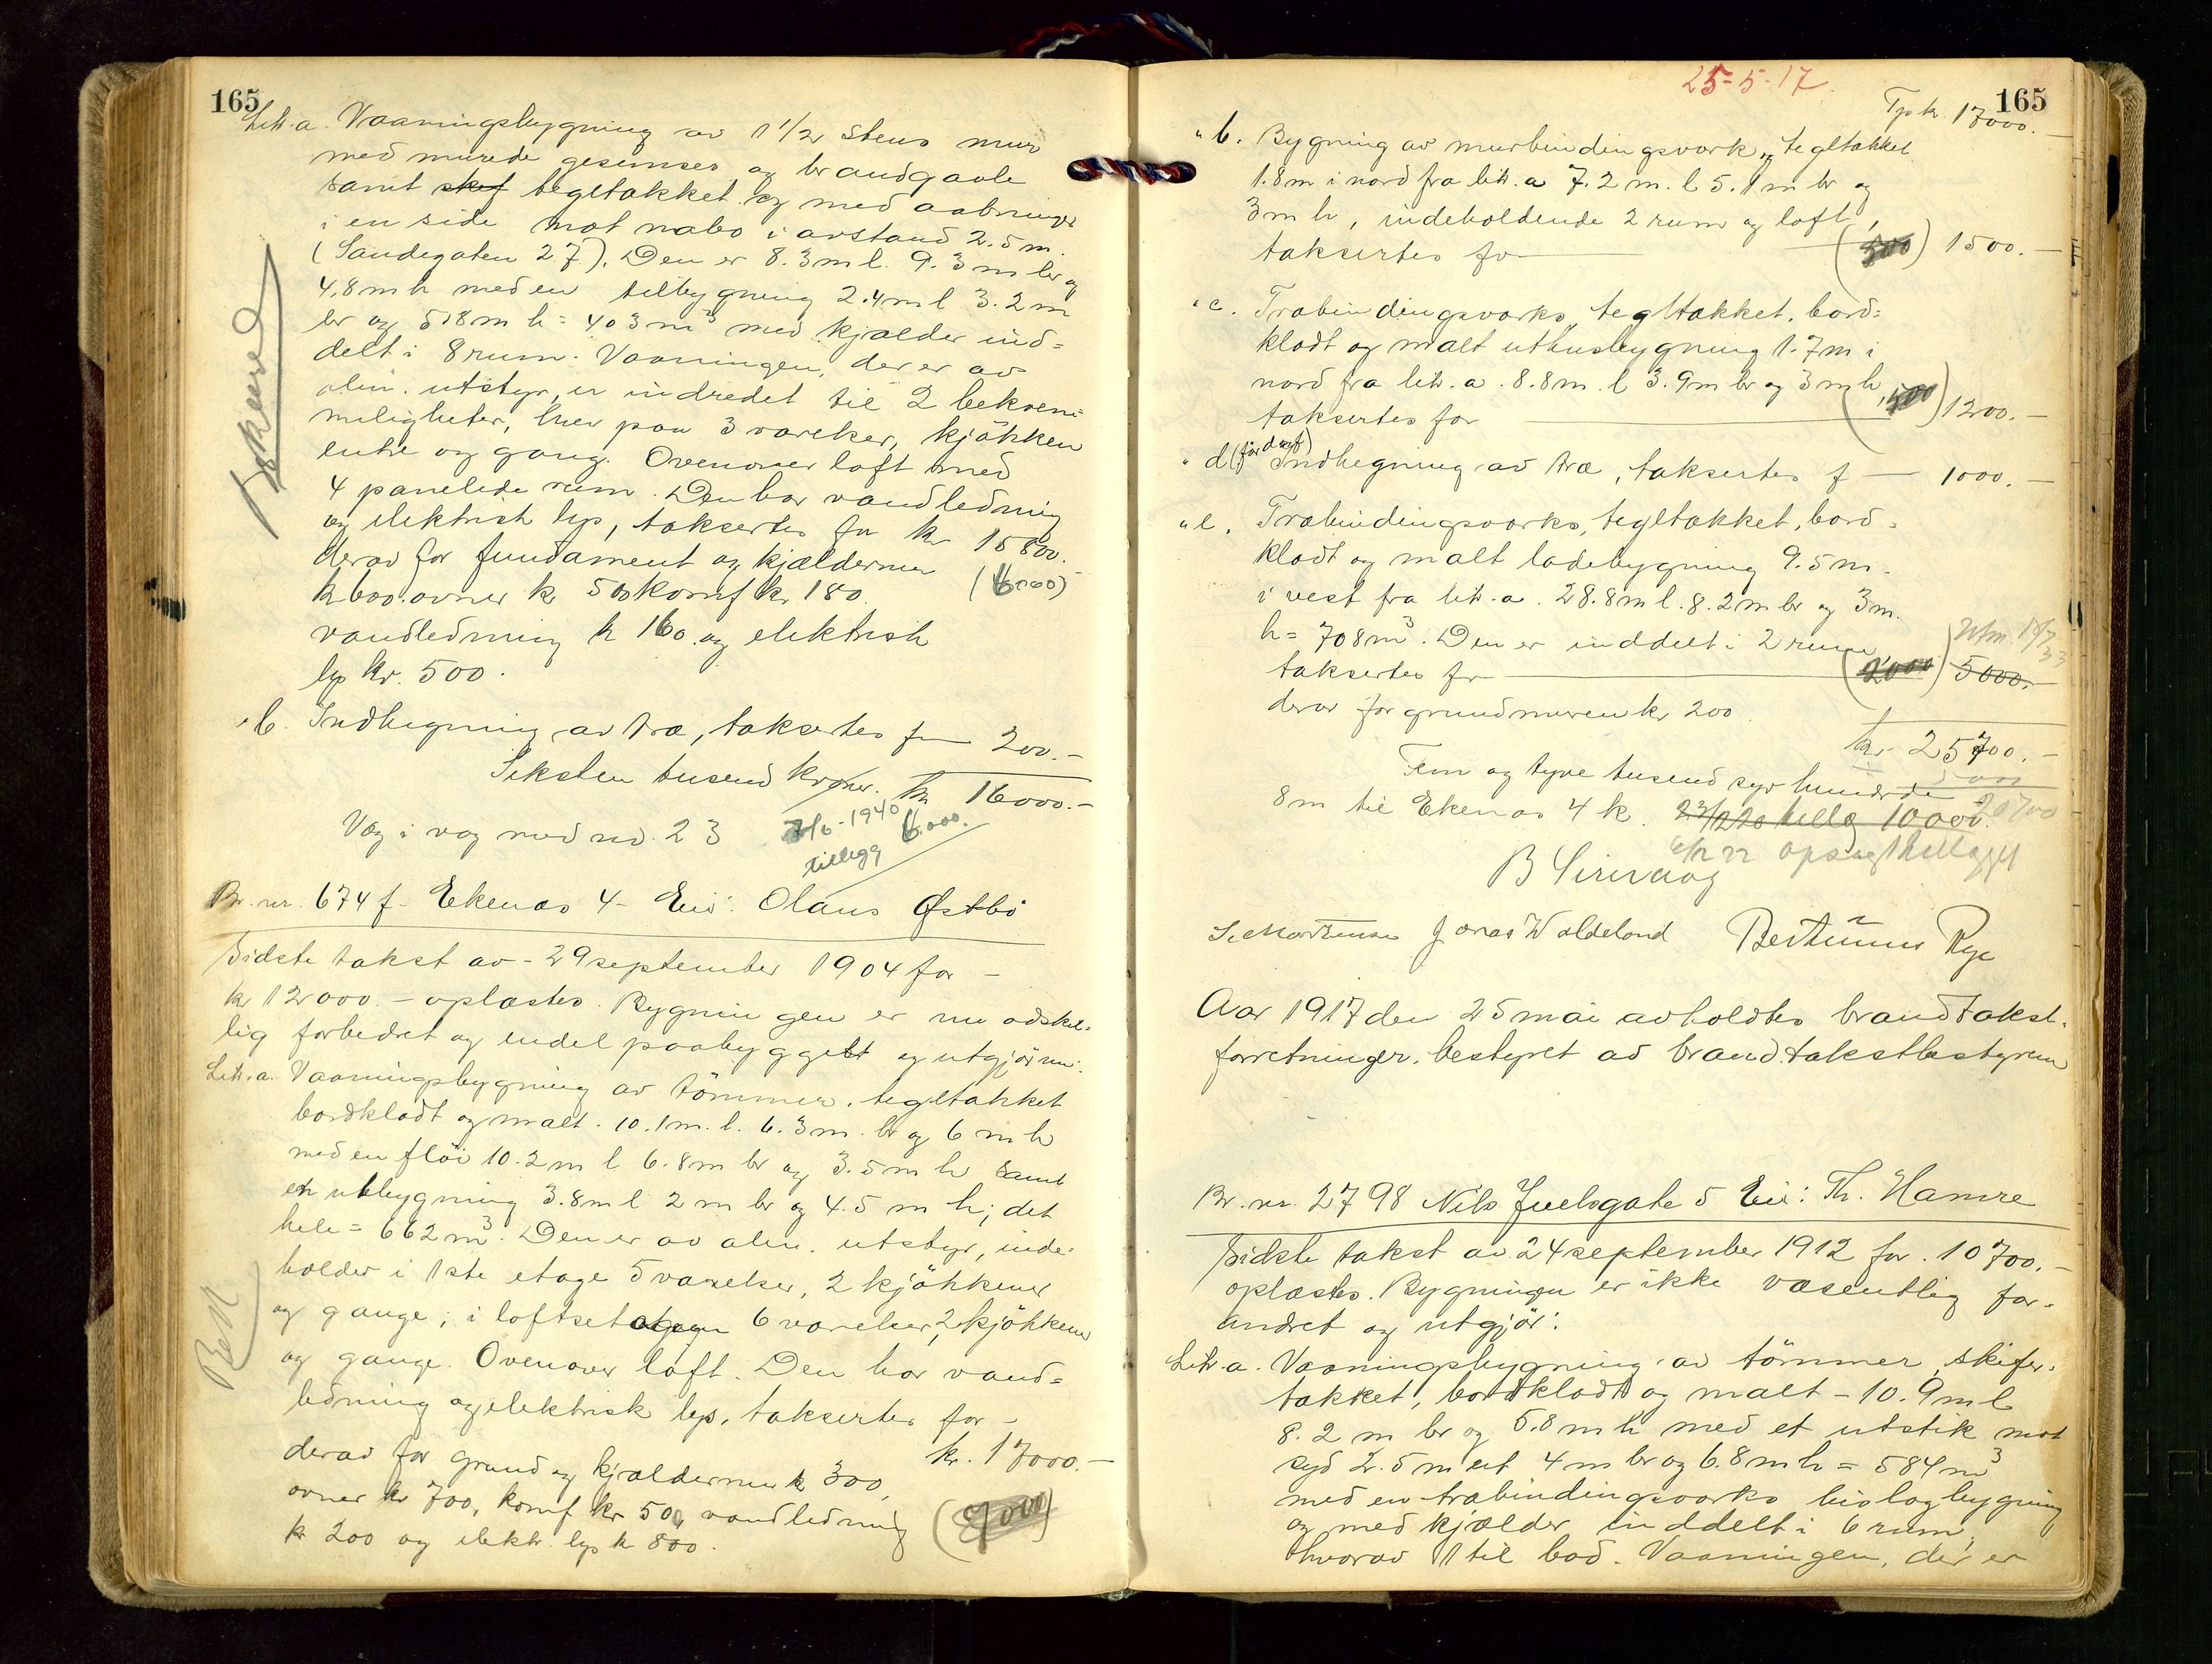 165
Litr. a. Vaaningsbygning av 1 1/2 Stens mur
med murede gesimser og brandgavle
samt tegltækket og med aabninger
i en side mot nabo i avstand 2.5 m.
(Sandegaten 27). Den er 8.3 m l. 9.3 m br og
4,8 m h med en tilbygning 2.4 m l 3.2 m
br og 5.8 m h = 403 m³ med kjælder ind=
delt i 8 rum. Vaaningen, der er av
alm. utstyr, er indredet til 2 bekvem=
meligheter, hver paa 3 værelser, kjøkken
entre og gang. Ovenover loft med
4 panelede rum. Den har vandledning
og elektrisk lys, taksertes for kr 15800.-
derav for fundament og kjældermur
k 600. ovner kr 500 komf kr 180. (6000)
vandledning k 160. og elektrisk
lys kr. 500.
" b. Indhegning av træ, taksertes for 200.-
Seksten tusend kroner. kr 16000.-
Væg i væg med no. 23 7/6-1940 6.000.
tillegg
Br. nr. 674 f- Ekenæs 4- Eier: Olaus Østbö
Sidste takst av - 29 september 1904 for -
kr 12000.- oplæstes. Bygningen er nu adskil=
lig forbedret og endel paabygget og utgjör nu:
Litr. a. Vaaningsbygning av tömmer, tegltækket
bordklædt og malt. 10.1 m. l. 6.3 m. br og 6 m h
med en flöi 10.2 m l 6.8 m br og 3.5 m h samt
en utbygning 3.8 m l 2 m br og 4.5 m h; det
hele = 662 m³. Den er av alm. utstyr, inde=
holder i 1ste etage 5 værelser, 2 kjøkkener
og gange; i loftsetagen 6 værelser, 2 kjøkkener
og gange. Ovenover loft. Den har vand=
ledning og elektrisk lys, taksertes for -
kr. 17000.-
derav for grund og kjældermur k 300,
ovner kr 700, komf kr 500, vandledning (9000)
k 200 og elektr. lys k 800.
25-5-17.
165
Tp k. 17000.-
" b. Bygning av murbindingsverk, tegltækket
1.8 m i nord fra litr. a 7.2 m. l 5.1 m br og
3 m h, indeholdende 2 rum og loft,
taksertes for (500) 1500.-
" c. Træbindingsverks, tegltækket, bord=
klædt og malt uthusbygning 1.7 m i
nord fra litr. a. 8.8 m. l 3.9 m br og 3 m h,
taksertes for (500) 1200.-
" d Indhegning av træ, taksertes f - 1000.-
" e. Træbindingsverks, tegltækket, bord=
klædt og malt ladebygning 9.5 m.
i vest fra litr. a. 28.8 m l. 8.2 m br og 3 m.
h = 708 m³. Den er inddelt i 2 rum
taksertes for (2000) 5000.-
derav for grundmuren kr 200.
kr 25700.-
Fem og tyve tusend syv hundrede 5000
8 m til Ekenæs 4 k. 23/12 20 tillæg 10000. 20700
6/12 22 opsagt tillægget
B Sirevaag
S. Mortensen Jonas W Aldeland Bertinius Rye
Aar 1917 den 25 mai avholdtes brandtakst=
forretninger, bestyret av brandtakstbestyreren
Br. nr. 2798 Nils Juelsgate 5 Eier: Th. Hamre
Sidste takst av 24 september 1912 for. 10700.-
oplæstes. Bygningen er ikke væsentlig for=
andret og utgjör:
Litr. a. Vaaningsbygning av tömmer, skifer=
tækket, bordklædt og malt - 10.9 m l
8.2 m br og 5.8 m h med et utstik mot
syd 2.5 m ut 4 m br og 6.8 m h = 584 m³
med en træbindingsverks bislagbygning
og med kjælder inddelt i 6 rum,
hvorav 1 til bod. Vaaningen, der er